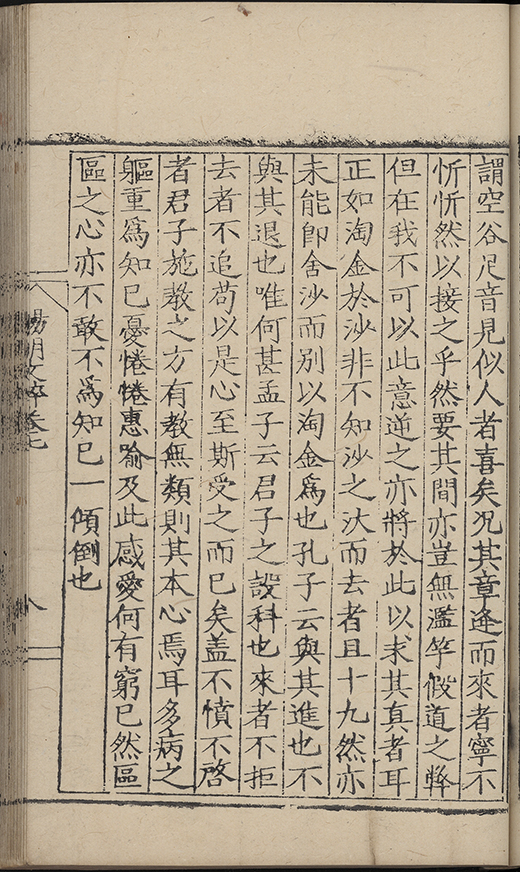 謂空谷足音見似人者喜矣况其章逢而來者寧不
忻忻然以接之乎然要其間亦豈無濫竽假道之弊
但在我不可以此意逆之亦將於此以求其真者耳
正如淘金於沙非不知沙之汰而去者且十九然亦
未能即舍沙而別以淘金爲也孔子云與其進也不
與其退也唯何甚孟子云君子之設科也來者不拒
去者不追苟以是心至斯受之而已矣盖不憤不啓
者君子施教之方有教無類則其本心焉耳多病之
軀重爲知已憂惓惓惠喻及此感愛何有窮已然區
區之心亦不敢不爲知已一傾倒也
陽明文粹卷七
八